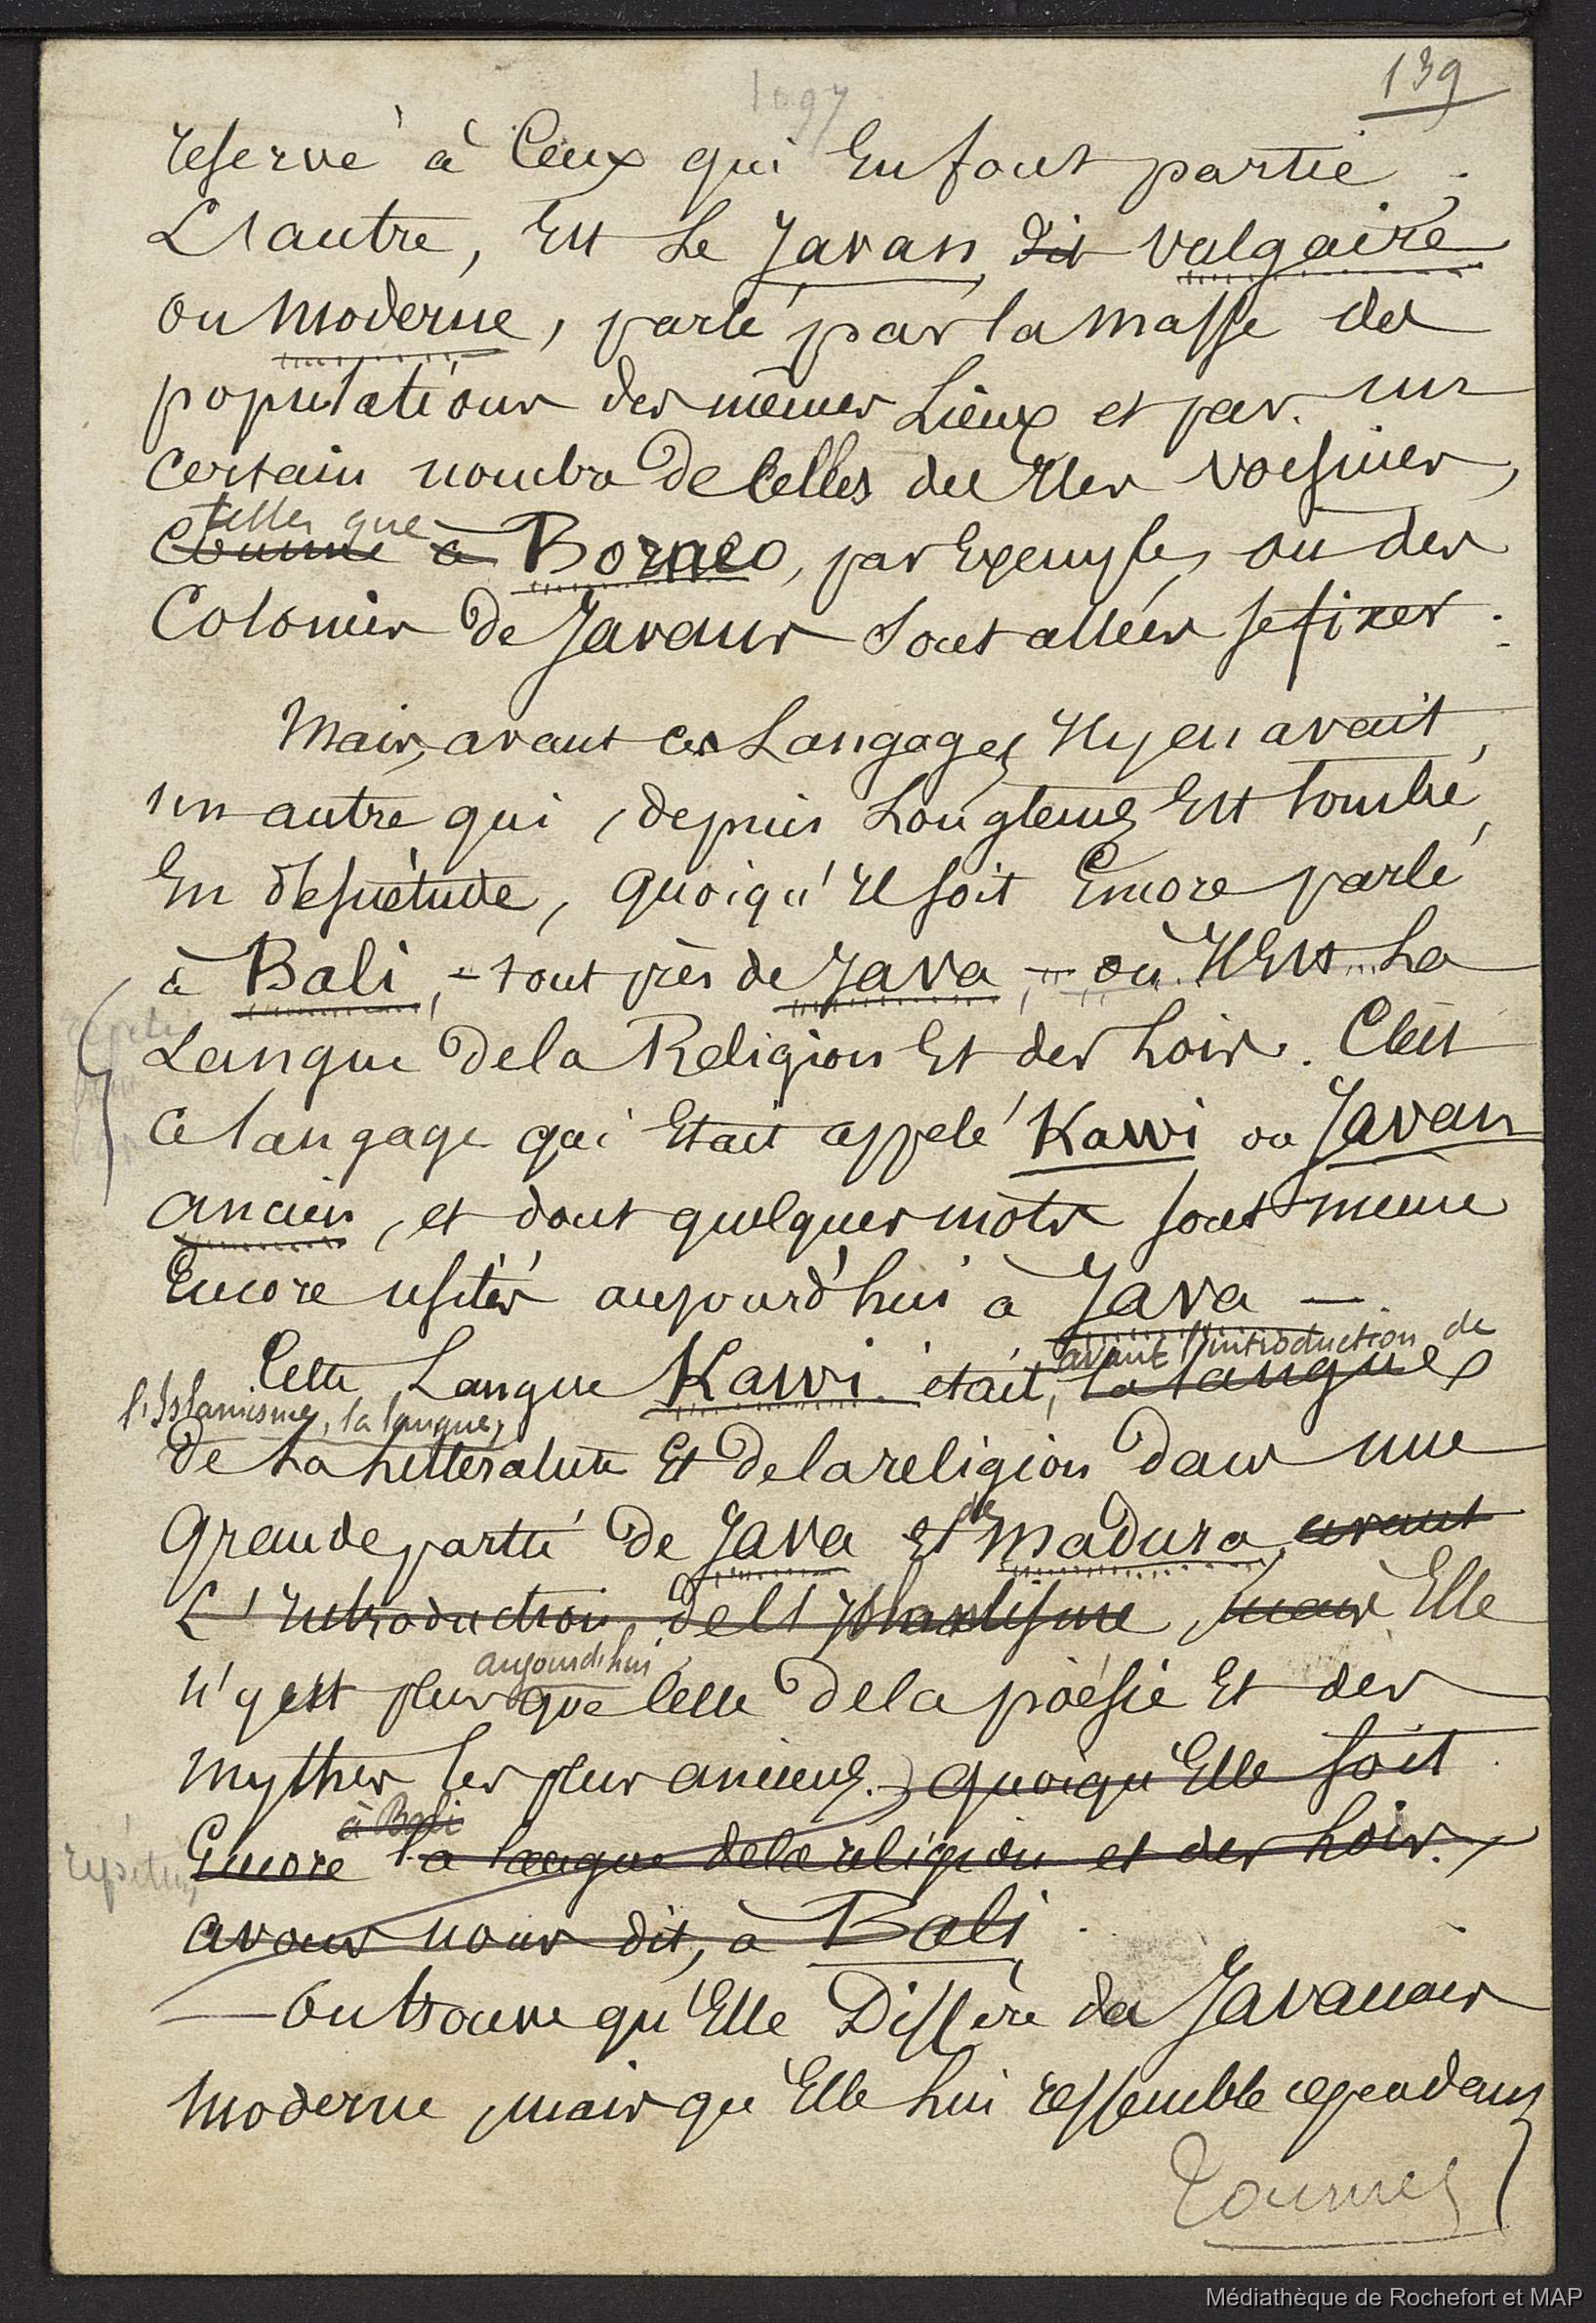 139
1097
reservé à Ceux qui En font partie ;
L'autre, Est Le Javan dit vulgaire
ou moderne, parlé par la masse des
populations des mêmes Lieux et par un
certain nombre de Celles des Iles voisines,
telles que
Comme à Borneo, par Exemple, où des
Colonies de Javans Sont allées se fixer.
Mais, avant ces Langages, Il y en avait,
un autre qui, depuis Longtems, Est tombé,
En désuètude, quoiqu'Il soit Encore parlé
à Bali, - tout près de Java, - où Il Est La
Langue de la Religion Et des Lois. C'est
ce langage qui Etait appelé Kawi ou Javan
ancien, et dont quelques mots sont meme
Encore usités aujourd'hui à Java —
avant l'introduction de
Cette Langue Kawi était, la langue
l'Islamisme, la langue,
de La Littérature Et de la religion dans une
de
Grande partie de Java et Madura, avant
L'Introduction de l'Islamisme, mais Elle
aujourd'hui
n'y est plus que celle de la poésie Et des
mythes les plus anciens. quoiqu'Elle soit
à Bali
Répétition
Encore la langue de la religion et des Lois,
avons nous dit, à Bali.
— On trouve qu'Elle Diffère du Javanais
moderne, mais qu'Elle Lui ressemble cependant
Tournez
Médiathèque de Rochefort et MAP